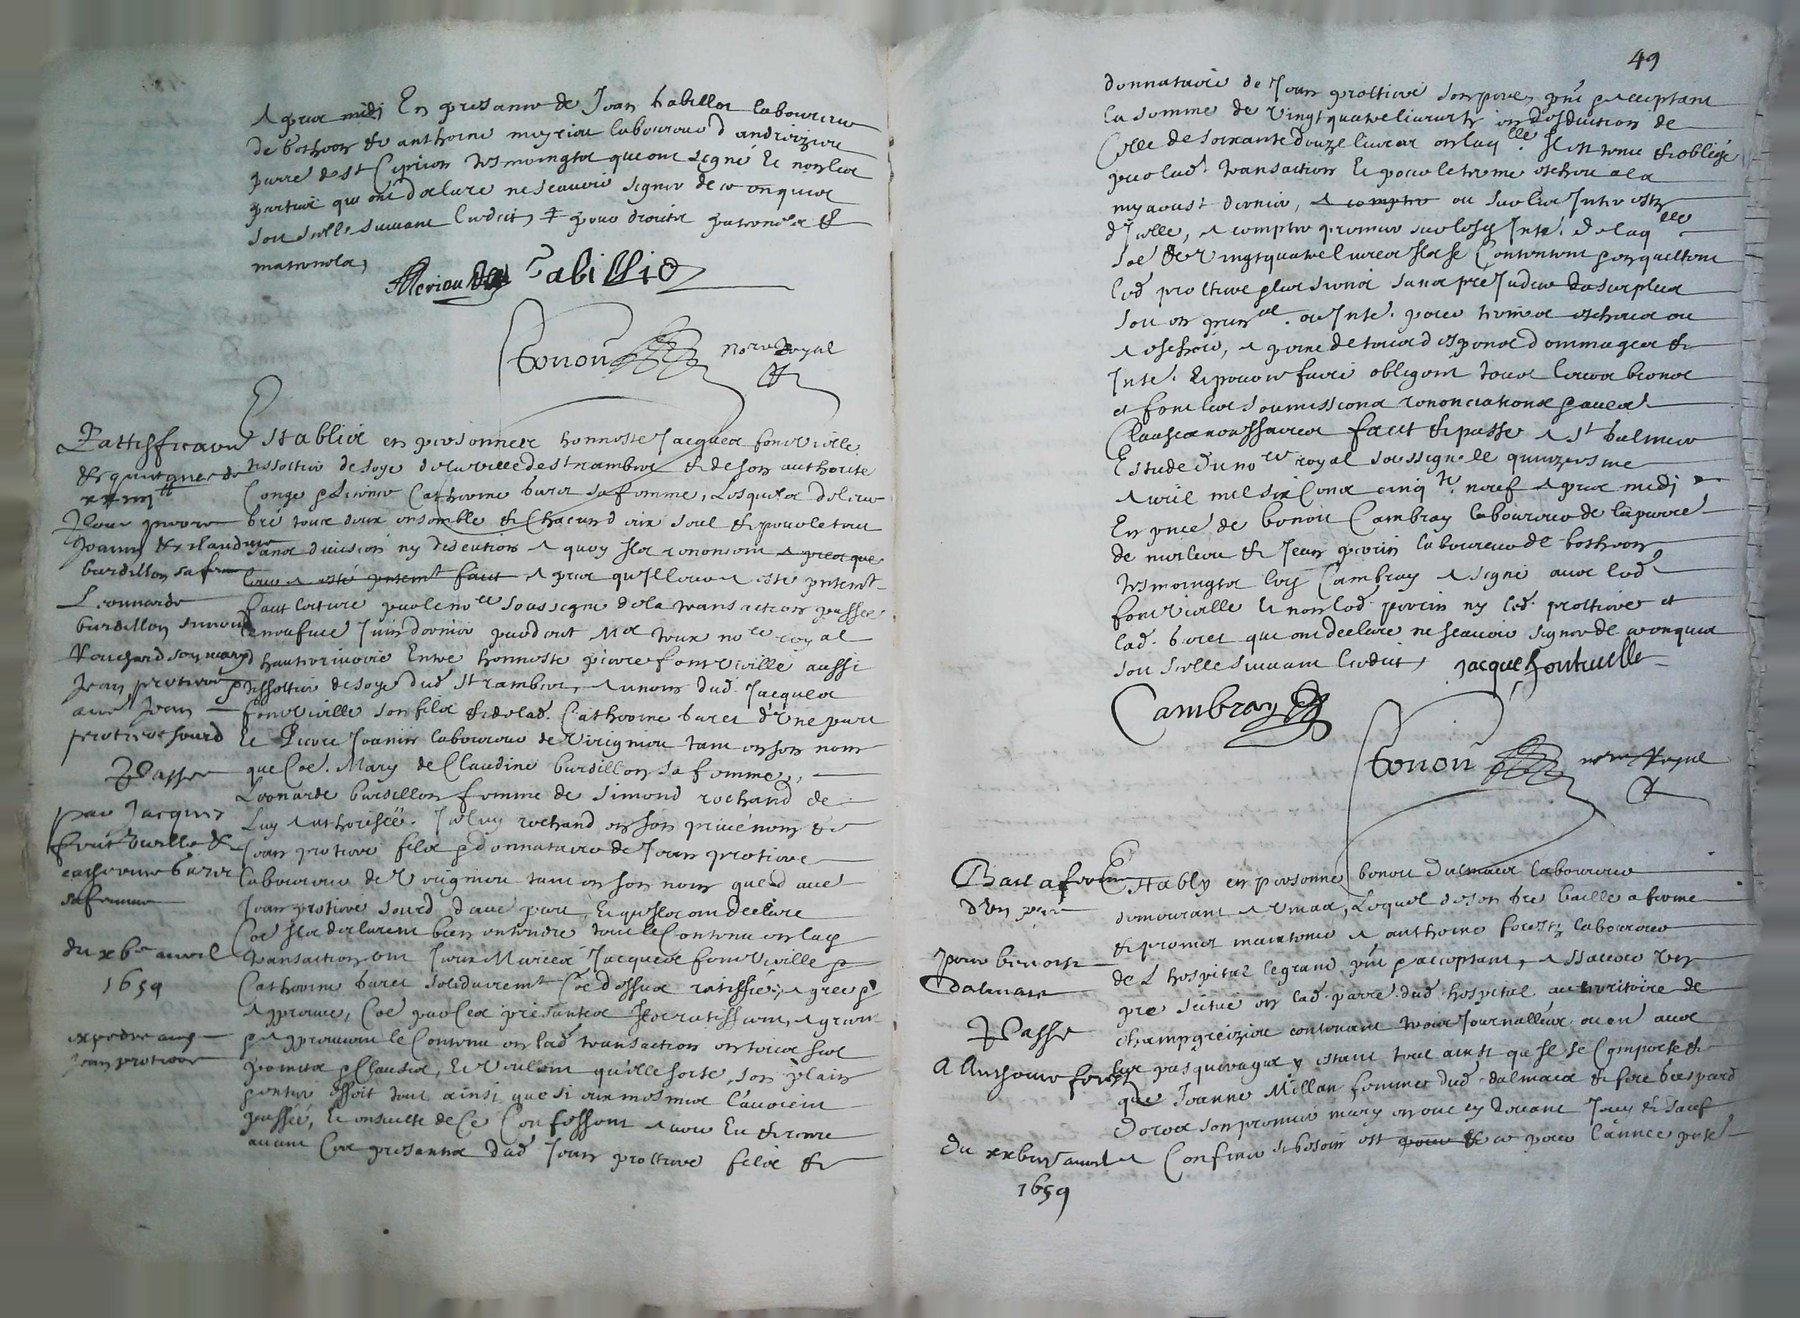 Apres midi En presance de Jean habillon laboureur
de bothoon & anthoine meyriou laboureur d andrizieu
parre de st Ciprien tesmoingtz que ont signé Et non les
parties qui ont declare ne scavoir signer de ce enquis
soit scelle suivant l'edict, & pour droictz patronelz &
matronelz,
Meriou habillio
Tonoù nore Royal
Rattifficaon
& quittance de
xxiiii lt
Pour pierre
Joanin & claudine
burdillon sa fem
Leonnarde
burdillon simond
Rouchard son mary
Jean protiere
avec Jean
protiere sourd
Passee
par Jacques
fontvieille &
catherine buret
sa femme
du xve avril
1659
expedie aud
jean protiere
Establis en personnes honneste Jacques fontvieille
tissottier de soye de la ville de st rambert & de son authorite
Conge & licence Catherine buret sa femme, Lesquelz de leur
bre tous deux ensemble & chacun d eux seul & pour le tout
sans division ny discution a quoy ilz renoncent apres que
leur a esté presentemt faict apres qu'il leur a esté presentemt
faict lecture par le nore soussigne de la transaction passee
le neufvie Juin dernier pardevt Me toux nore royal
d hauterivoire Entre honneste pierre fontvieille aussi
tissottier de soye dud St rambert, au nom dud. Jacques
fontvieille son filz & de lad. Catherine buret d'une part
Et Pierre Joanin laboureur de Virignieu tant en son nom
que Coe. Mary de Claudine burdillon sa femme,
Leonarde burdillon femme de simond rochand de
Luy authorisée. Icelluy rochand en son privé nom &
Jean protiere filz & donnataire de Jean protiere
laboureur de Virignieu tant en son nom que d avec
Jean protiere sourd d autre part, Et qu'ilz ont declare
Coe ilz declarent bien entendre tout le contenu en lad
transaction ont Iceux Mariez Jacques fontvieille &
Catherine buret solidairemt Coe dessus ratiffié, agree &
approuve, Coe par Ces presantes Ilz ratiffient, agreent
& approuvent le contenu en lad transaction en tous ses
pointz & clauses, Et veulent qu'elle sorte, son plain
& entier effect tout ainsi que si eux mesmes l'avoient
passée, Et ensuitte de Ce Confessent avoir Eu & receu
avant Ces presantes dud Jean prottiere filz &
49
donnataire de Jean prottiere son pere, pnt & acceptant
la somme de vingt quatre livres tz en deduction de
Celle de soixante douze livres en laqlle Il est tenu & oblige
par lad transaction Et pour le terme escheu a la
myaoust dernier, a compter ou sur les Interestz
d'Icelle, a compter premier sur lesd Intz. de laqlle
soe de vingt quatre livres Ilz se Contentent & en quittent
led prottiere & les siens sans prejudice du surplus
soit en prinal. ou Intz. pour termes escheus ou
a escheoir, a peine de tous despens dommages &
Intz. Et pour ce faire obligent tous leurs biens
et font les soumissions renonciations & aultres
Clauses necessaires faict & passe a St Galmier
Estude du nore royal soussigne le quinziesme
Avril mil six Cens cinqte neuf apres midi
En pnce de benoit Cambray laboureur de la parre
de meyleu & Jean perrin laboureur de bothoon
tesmoingtz led Cambray a signe avec led
fontvieille Et non led perrin ny led. prottiere et
lad. buret que ont declare ne scavoir signer de ce enquis
soit scelle suivant l'edict, Jacque fontvielle
Cambray
Tonoù nore Royal
Bail a ferme
d'un pre
pour benoist
dalmais
Passe
A Anthoine forest
du xxbie avril
1659
Estably en personne benoit dalmais laboureur
demeurant a Umas, Lequel de son bre baille a ferme
& promet maintenir a anthoine forestz laboureur
de L hospital le grand pnt & acceptant, a sçavoir Un
pre scitue en lad. parre dud. hospital au territoire de
champgreizieu contenant trois Journalles ou en avec
les pasquerages y estant tout ainsi qu Il se Comporte &
que Joanne Millan femme dud. dalmais & feu Gaspard
dorer son premier mary en ont cy devant Jouy & sauf
A Confiner si besoin est pour & ce pour l'annee pnte